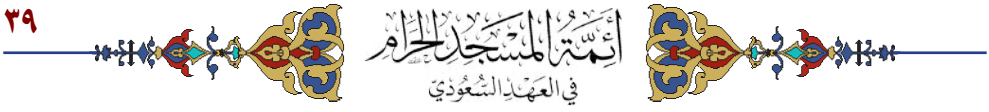 ٣٩
أَئِمَّةُ المَسْجِدِ الحَرَامِ
في العَهْدِ السُّعُودِيّ